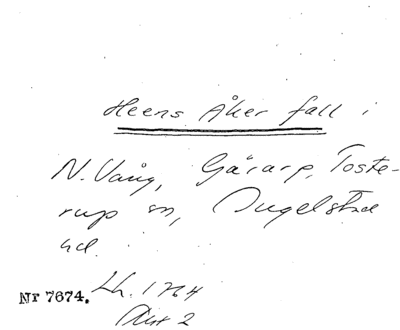 Heens Åker fall i
N. Vång, Gårarp, Toste-
rup sn, Ingelstad
hd.
Lh. 1764
Akt 2
Nr 7674.